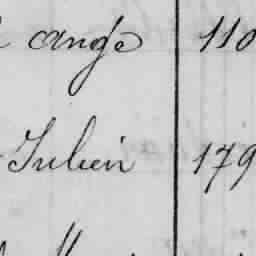 ange 110
Julien 179